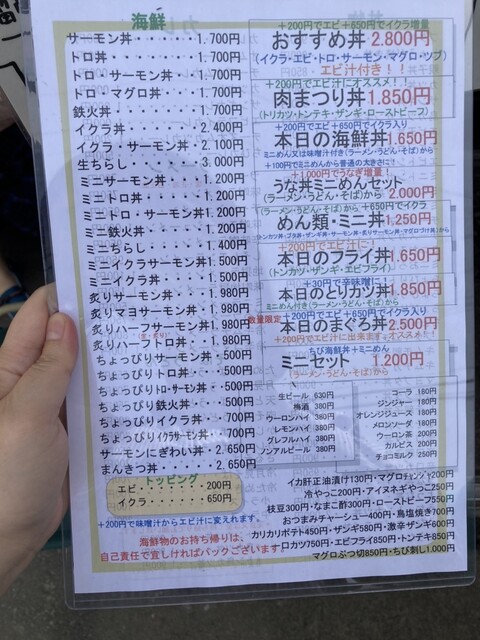 海鮮
サーモン丼・・・・・・1.700円
トロ丼・・・・・・・・1.700円
トロ・サーモン丼・・・1.700円
トロ・マグロ丼・・・・1.700円
鉄火丼・・・・・・・・1.700円
イクラ丼・・・・・・・2.400円
イクラ・サーモン丼・・2.100円
生ちらし・・・・・・・3.000円
ミニサーモン丼・・・・1.200円
ミニトロ丼・・・・・・1.200円
ミニトロ・サーモン丼1.200円
ミニ鉄火丼・・・・・・1.200円
ミニちらし・・・・・・1.400円
ミニイクラサーモン丼1.500円
ミニイクラ丼・・・・・1.500円
炙りサーモン丼・・・・1.980円
炙りマヨサーモン丼・・1.980円
炙りハーフサーモン丼1.980円
炙りハーフトロ丼・・・1.980円
ちょっぴりサーモン丼・・500円
ちょっぴりトロ丼・・・・500円
ちょっぴりトロ・サーモン丼・・500円
ちょっぴり鉄火丼・・・・500円
ちょっぴりイクラ丼・・・700円
ちょっぴりイクラサーモン丼・・700円
サーモンにぎわい丼・・2.650円
まんきつ丼・・・・・・2.650円
トッピング
エビ・・・・・・・200円
イクラ・・・・・・650円
+200円で味噌汁からエビ汁に変えれます。
海鮮物のお持ち帰りは、
自己責任で宜しければパックございます!
+200円でエビ +650円でイクラ増量
おすすめ丼 2.800円
(イクラ・エビ・トロ・サーモン・マグロ・ツブ)
エビ汁付き!!
+200円でエビ汁にオススメ!!
肉まつり丼 1.850円
(トリカツ・トンテキ・ザンギ・ローストビーフ)
+200円でエビ +650円でイクラ入り
本日の海鮮丼1.650円
ミニめん又は味噌汁付き(ラーメン・うどん・そば)から
+100円でミニめんから普通の大きさに!
+1.000円でうなぎ増量!
うな丼ミニめんセット
(ラーメン・うどん・そば)から 2.000円
(ラーメン・うどん・そば)から +650円でイクラ
めん類・ミニ丼 1.250円
+200円でエビ汁に!
本日のフライ丼1.650円
(トンカツ・ザンギ・エビフライ)
+30円で辛味噌に
本日のとりカツ丼1.850円
ミニめん付き(ラーメン・うどん・そば)から
数量限定
+200円でエビ +650円でイクラ入り
本日のまぐろ丼2.500円
+200円でエビ汁に出来ます。オススメ!
ちび海鮮丼+ミニめん
ミニセット 1.200円
(ラーメン・うどん・そば)から
生ビール 630円
梅酒 380円
ウーロンハイ 380円
レモンハイ 380円
グレフルハイ 380円
ノンアルビール 380円
コーラ 180円
ジンジャー 180円
オレンジジュース 180円
メロンソーダ 180円
ウーロン茶 200円
カルピス 200円
チョコミルク 250円
イカ肝正油漬け130円・マグロチャンジャ200円
冷やっこ200円・アイヌネギやっこ250円
枝豆300円・なまこ酢300円・ローストビーフ550円
おつまみチャーシュー400円・鳥塩焼き700円
カリカリポテト450円・ザンギ580円・激辛ザンギ600円
ロカツ750円・エビフライ850円・トンテキ850円
マグロぶつ切850円・ちび刺し1.000円